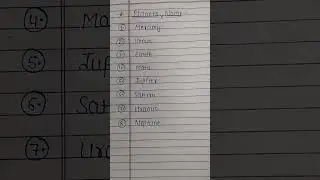 Planets Name
① Mercury
② Venus
③ Earth
④ Mars
⑤ Jupiter
⑥ Saturn
⑦ Uranus
⑧ Neptune
4.
5.
6.
7.